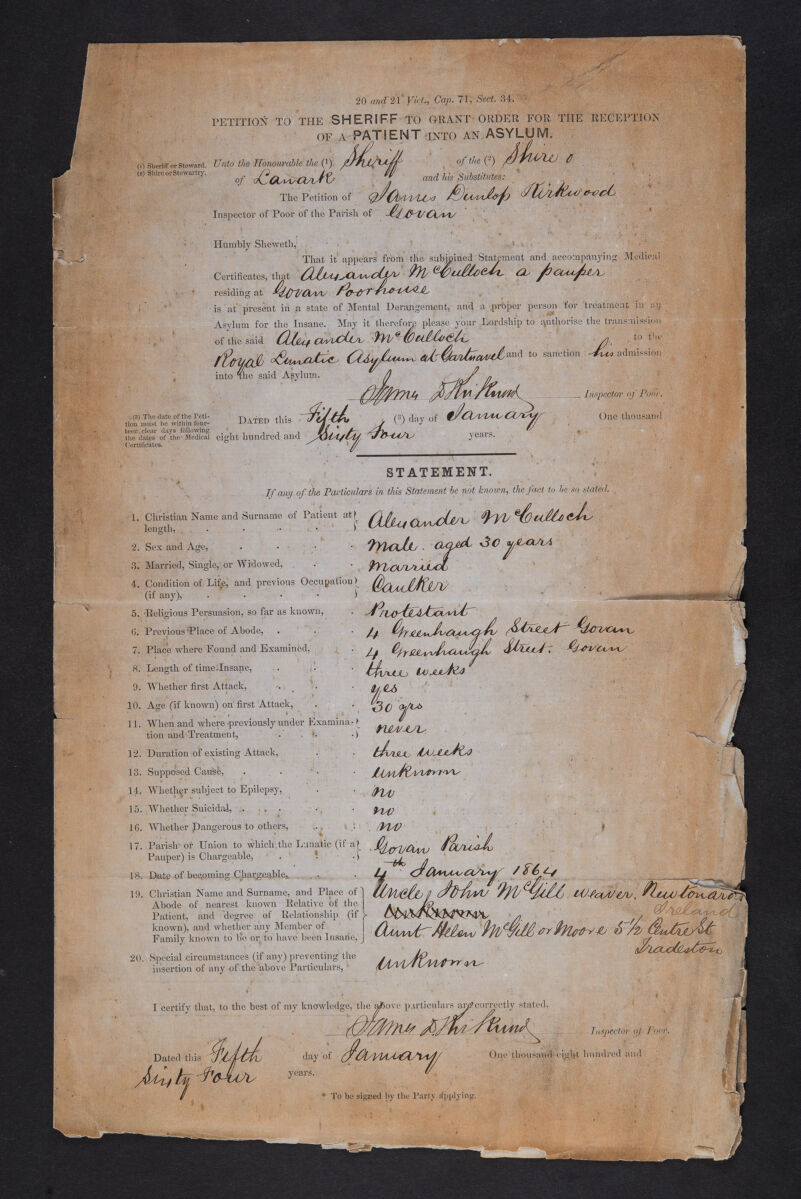 20 and 21 Vict., Cap. 71, Sect. 34.
PETITION TO THE SHERIFF TO GRANT ORDER FOR THE RECEPTION
OF A PATIENT INTO AN ASYLUM.
(1) Sheriff or Steward.
(2) Shire or Stewartry.
Unto the Honourable the (1) Sheriff of the (2) Shire o
of Lanark and his Substitutes:
The Petition of James Dunlop Kirkwood
Inspector of Poor of the Parish of Govan
Humbly Sheweth,
That it appears from the subjoined Statement and accompanying Medical
Certificates, that Alexander McCulloch a pauper
residing at Govan Poorhouse
is at present in a state of Mental Derangement, and a proper person for treatment in an
Asylum for the Insane. May it therefore please your Lordship to authorise the transmission
of the said Alexander McCulloch to the
Royal Lunatic Asylum at Gartnavel and to sanction his admission
into the said Asylum.
James D Kirkwood Inspector of Poor.
(3) The date of the Petition must be within fourteen clear days following the dates of the Medical Certificates.
DATED this Fifth (3) day of January One thousand
eight hundred and Sixty Four years.
STATEMENT.
If any of the Particulars in this Statement be not known, the fact to be so stated.
1. Christian Name and Surname of Patient at length, Alexander McCulloch
2. Sex and Age, Male. aged 30 years
3. Married, Single, or Widowed, Married
4. Condition of Life, and previous Occupation (if any), Caulker
5. Religious Persuasion, so far as known, Protestant
6. Previous Place of Abode, 4 Greenhaugh Street Govan
7. Place where Found and Examined, 4 Greenhaugh Street. Govan
8. Length of time Insane, three weeks
9. Whether first Attack, yes
10. Age (if known) on first Attack, 30 yrs
11. When and where previously under Examination and Treatment, never
12. Duration of existing Attack, three weeks
13. Supposed Cause, unknown
14. Whether subject to Epilepsy, no
15. Whether Suicidal, no
16. Whether Dangerous to others, no
17. Parish or Union to which the Lunatic (if a Pauper) is Chargeable, Govan Parish
18. Date of becoming Chargeable, 4th January 1864
19. Christian Name and Surname, and Place of Abode of nearest known Relative of the Patient, and degree of Relationship (if known), and whether any Member of Family known to be or to have been Insane,
Uncle, John McGill weaver, Newtonards
Ireland
Unknown
Aunt Helen McGill or Moore 51/2 Centre St
Tradeston
20. Special circumstances (if any) preventing the insertion of any of the above Particulars, unknown
I certify that, to the best of my knowledge, the above particulars are correctly stated.
James D Kirkwood Inspector of Poor.
Dated this Fifth day of January One thousand eight hundred and
Sixty Four years.
* To be signed by the Party applying.